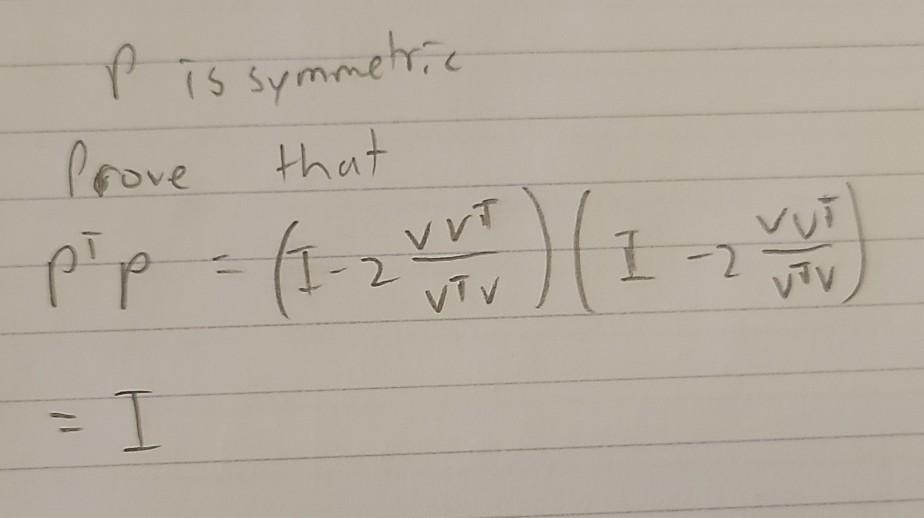 P is symmetric
Prove that
P^T P = (I - 2 \frac{v v^T}{v^T v}) (I - 2 \frac{v v^T}{v^T v})
= I